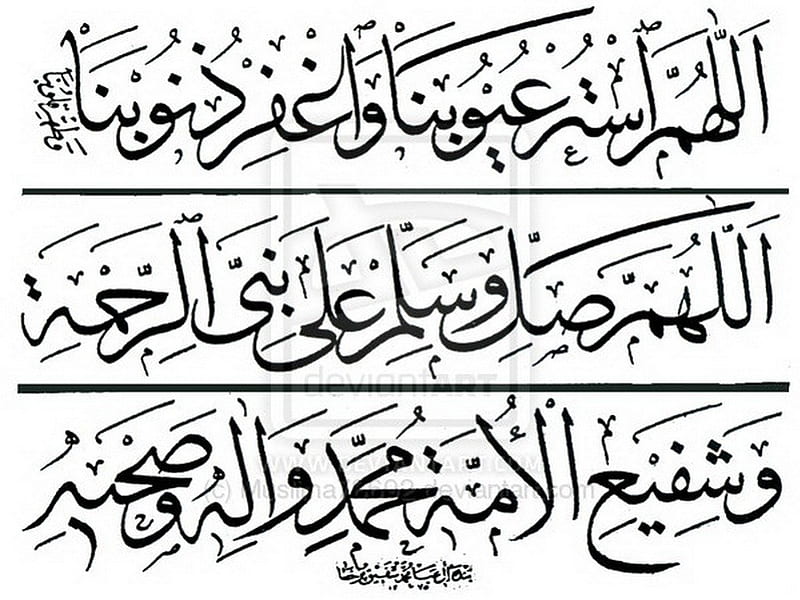 اَللّٰهُمَّ اسْتُرْ عُيُوْبَنَا وَاغْفِرْ ذُنُوْبَنَا
اَللّٰهُمَّ صَلِّ وَسَلِّمْ عَلٰى نَبِيِّ الرَّحْمَةِ
وَشَفِيْعِ الْاُمَّةِ مُحَمَّدٍ وَّاٰلِهٖ وَصَحْبِهٖ
deviantART
WWW.DEVIANTART.COM